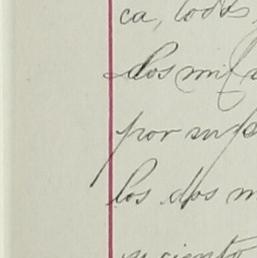 ca, todos
dos mil
por
los dos m
ciento